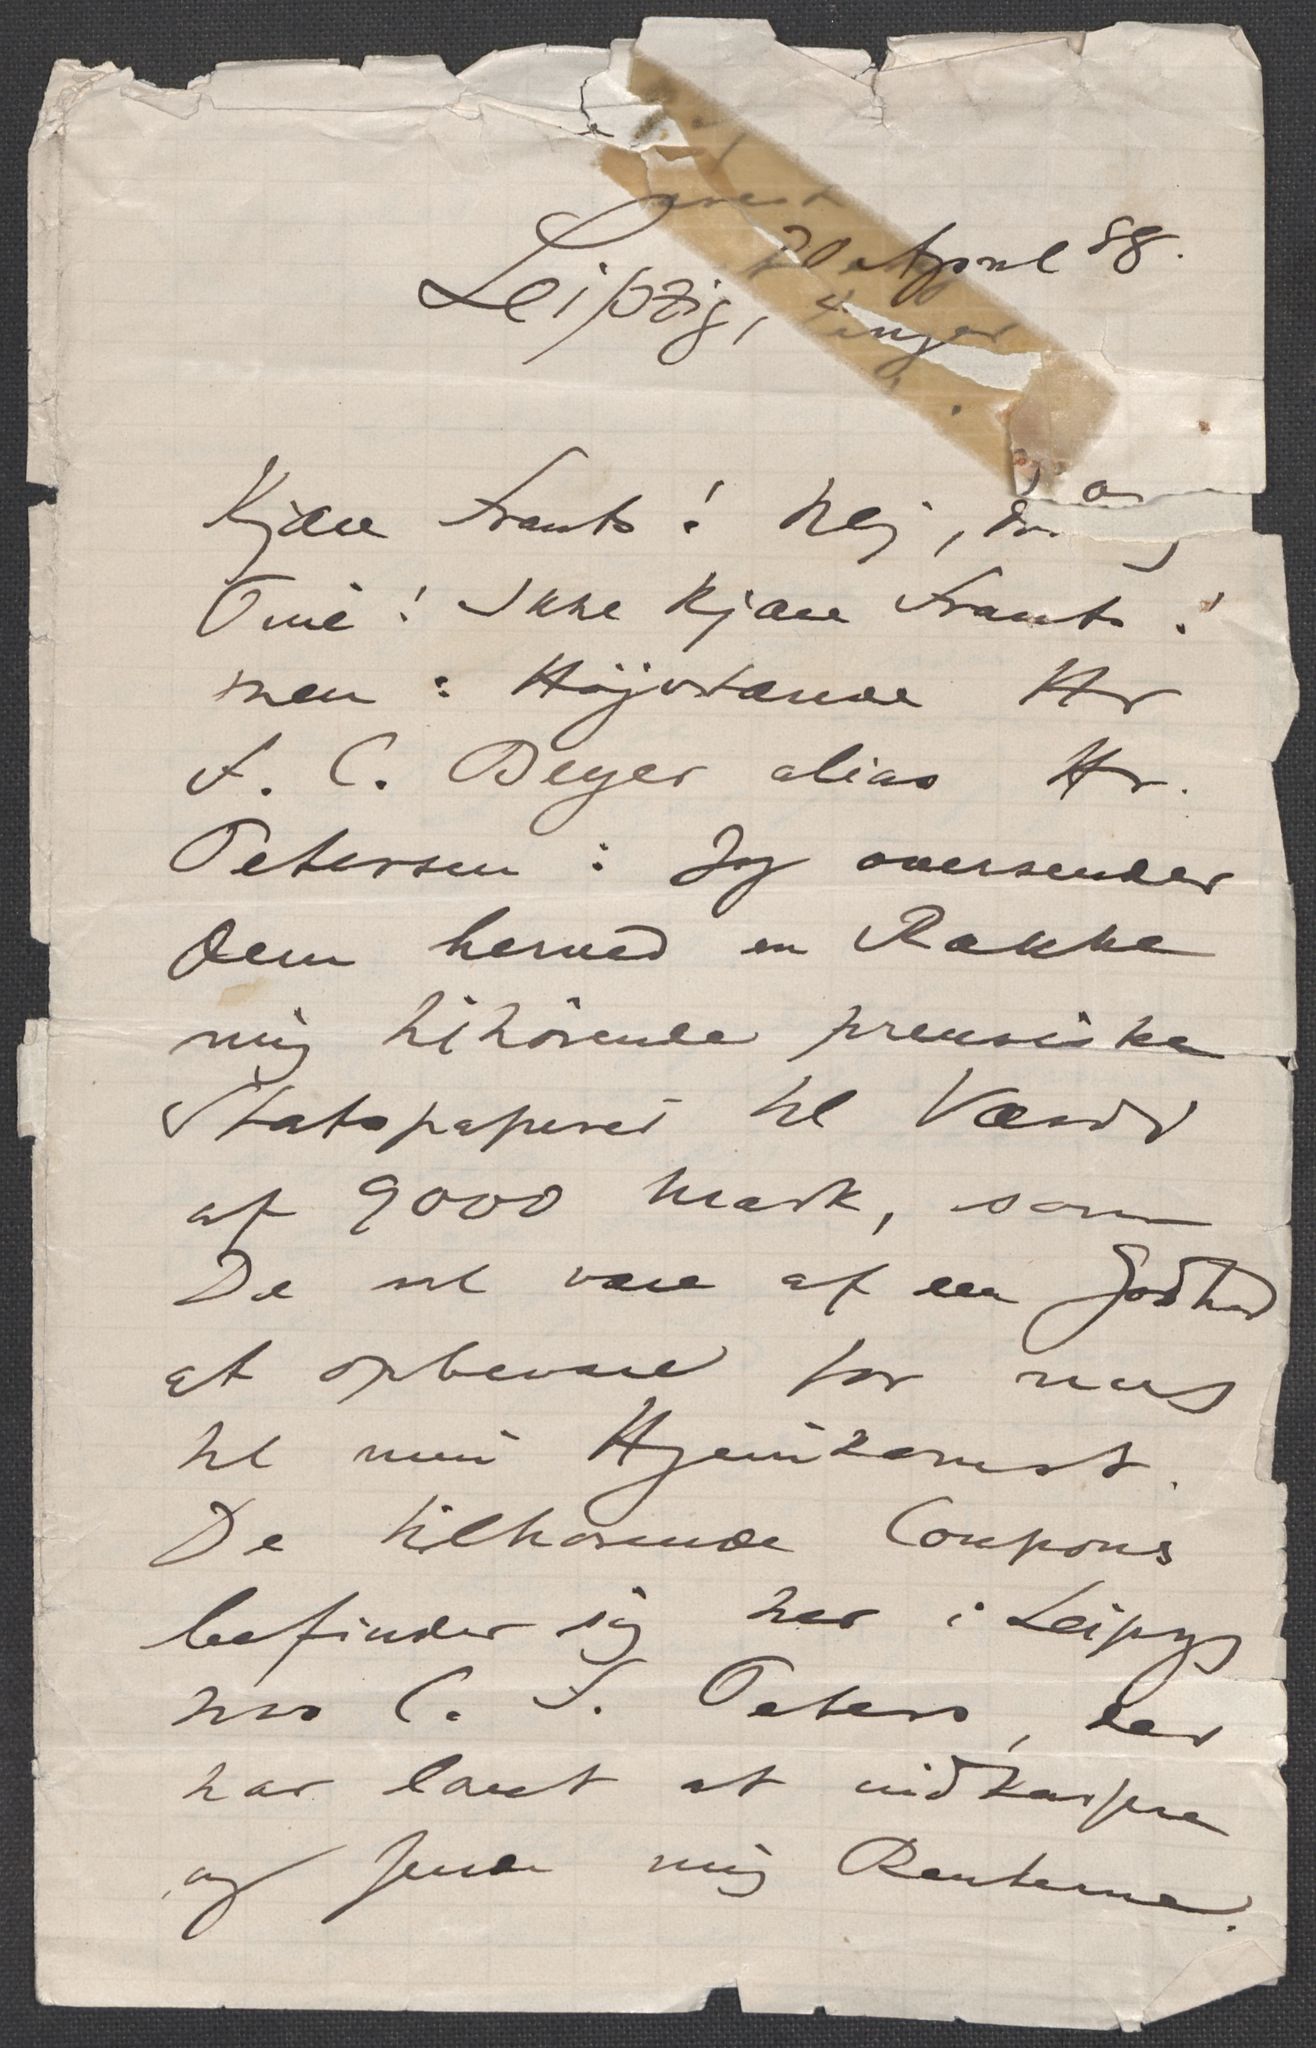 20 April 88.
Leipzig,
Kjære Frants! Nej,
Ikke kjære Frants!
men: Højstærede Hr
F. C. Beyer alias Hr.
Petersen: Jeg oversender
Dem herved en Række
mig tilhörende preussiske
Statspapirer til Værdi
af 9000 Mark, som
De vil være af den Godhed
at opbevare for mig
til min Hjemkomst.
De tilhørende Coupons
befinder sig her i Leipzig
hos C. F. Peters, der
har lovet at indkassere
og sende mig Renterne.